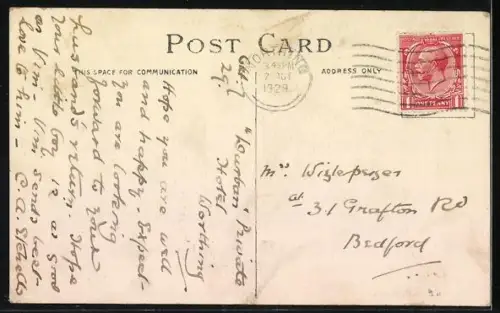 POST CARD
THIS SPACE FOR COMMUNICATION
ADDRESS ONLY
WORTHING
1929
ONE PENNY
29.
"Private
Hotel
Worthing
Hope you are well
and happy - Expect
you are looking
forward to your
husband's return. Hope
your little boy is as good
as Vim - Vim sends best
love to him - C. A.
Mrs
at 31 Grafton Rd
Bedford